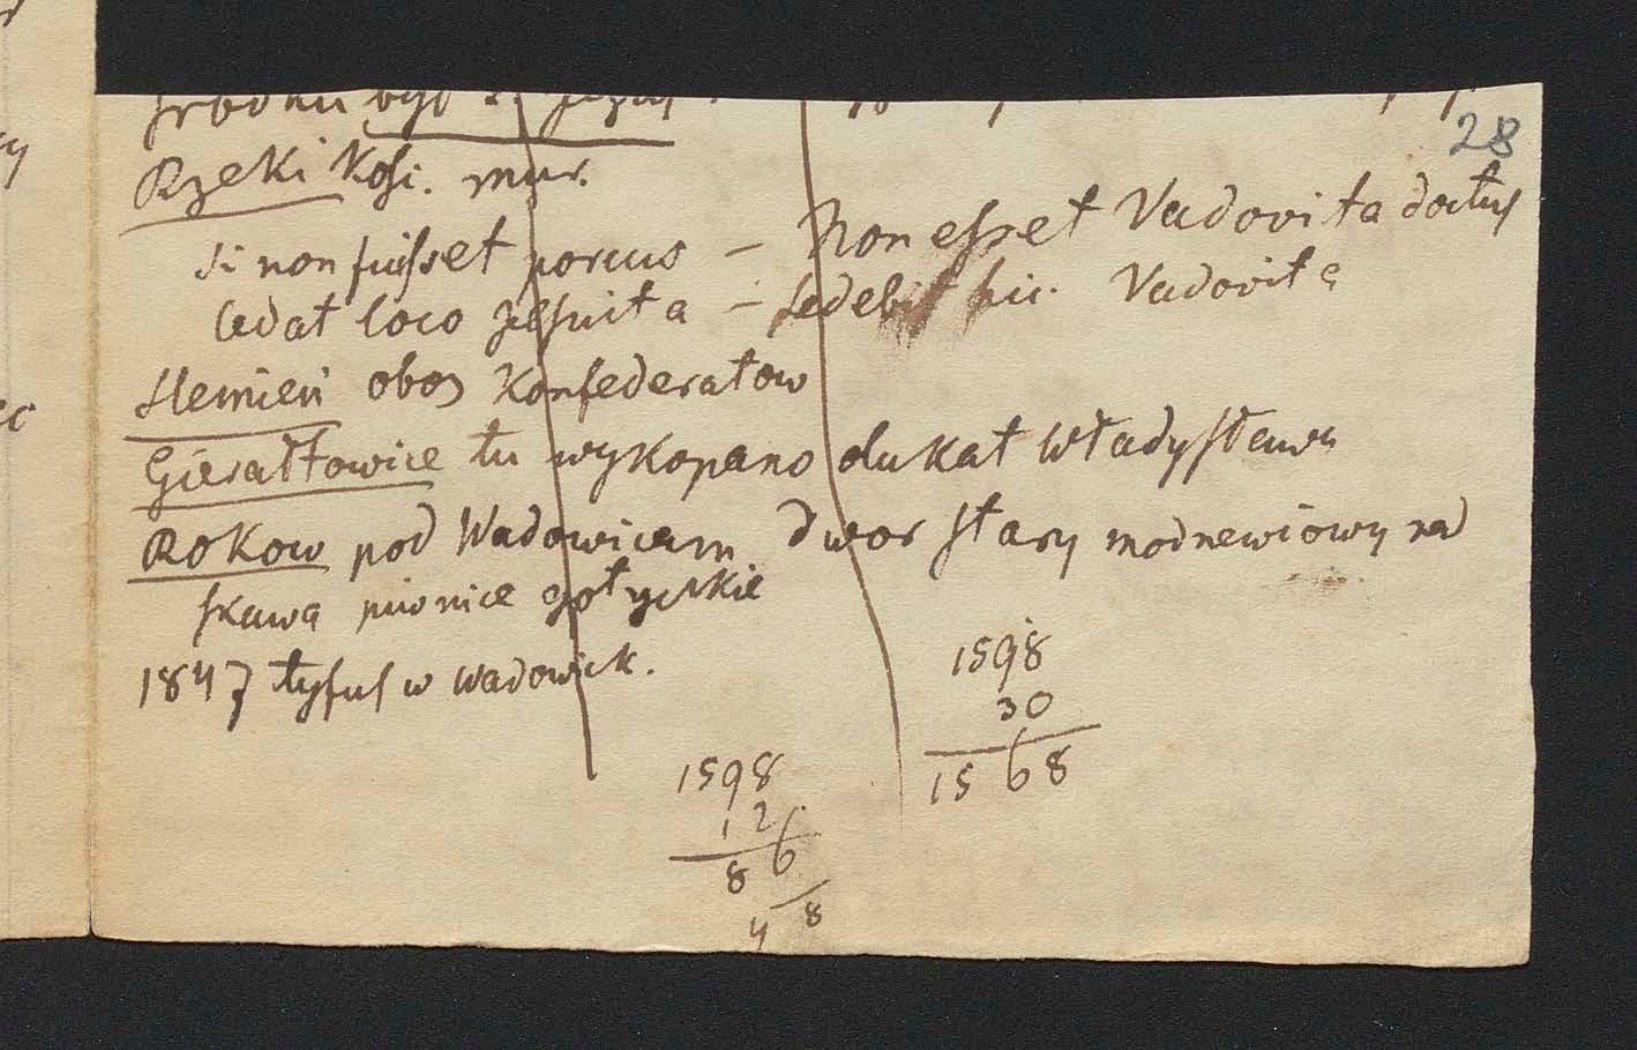 28
Rzeki Kośi. mur.
Si non fuisset porcus – Non esset Vadovita doctus
Cedat loco Jesuita – sedebit hic. Vadovita
Slemień oboz Konfederatow
Gierałtowice tu wykopano dukat Władysława
Rokow pod Wadowicam dwor stary modrewiowy nad
skawą piwnice gotyckie
1847 tyfus w Wadowick.
1598
30
1568
1598
12
86
48